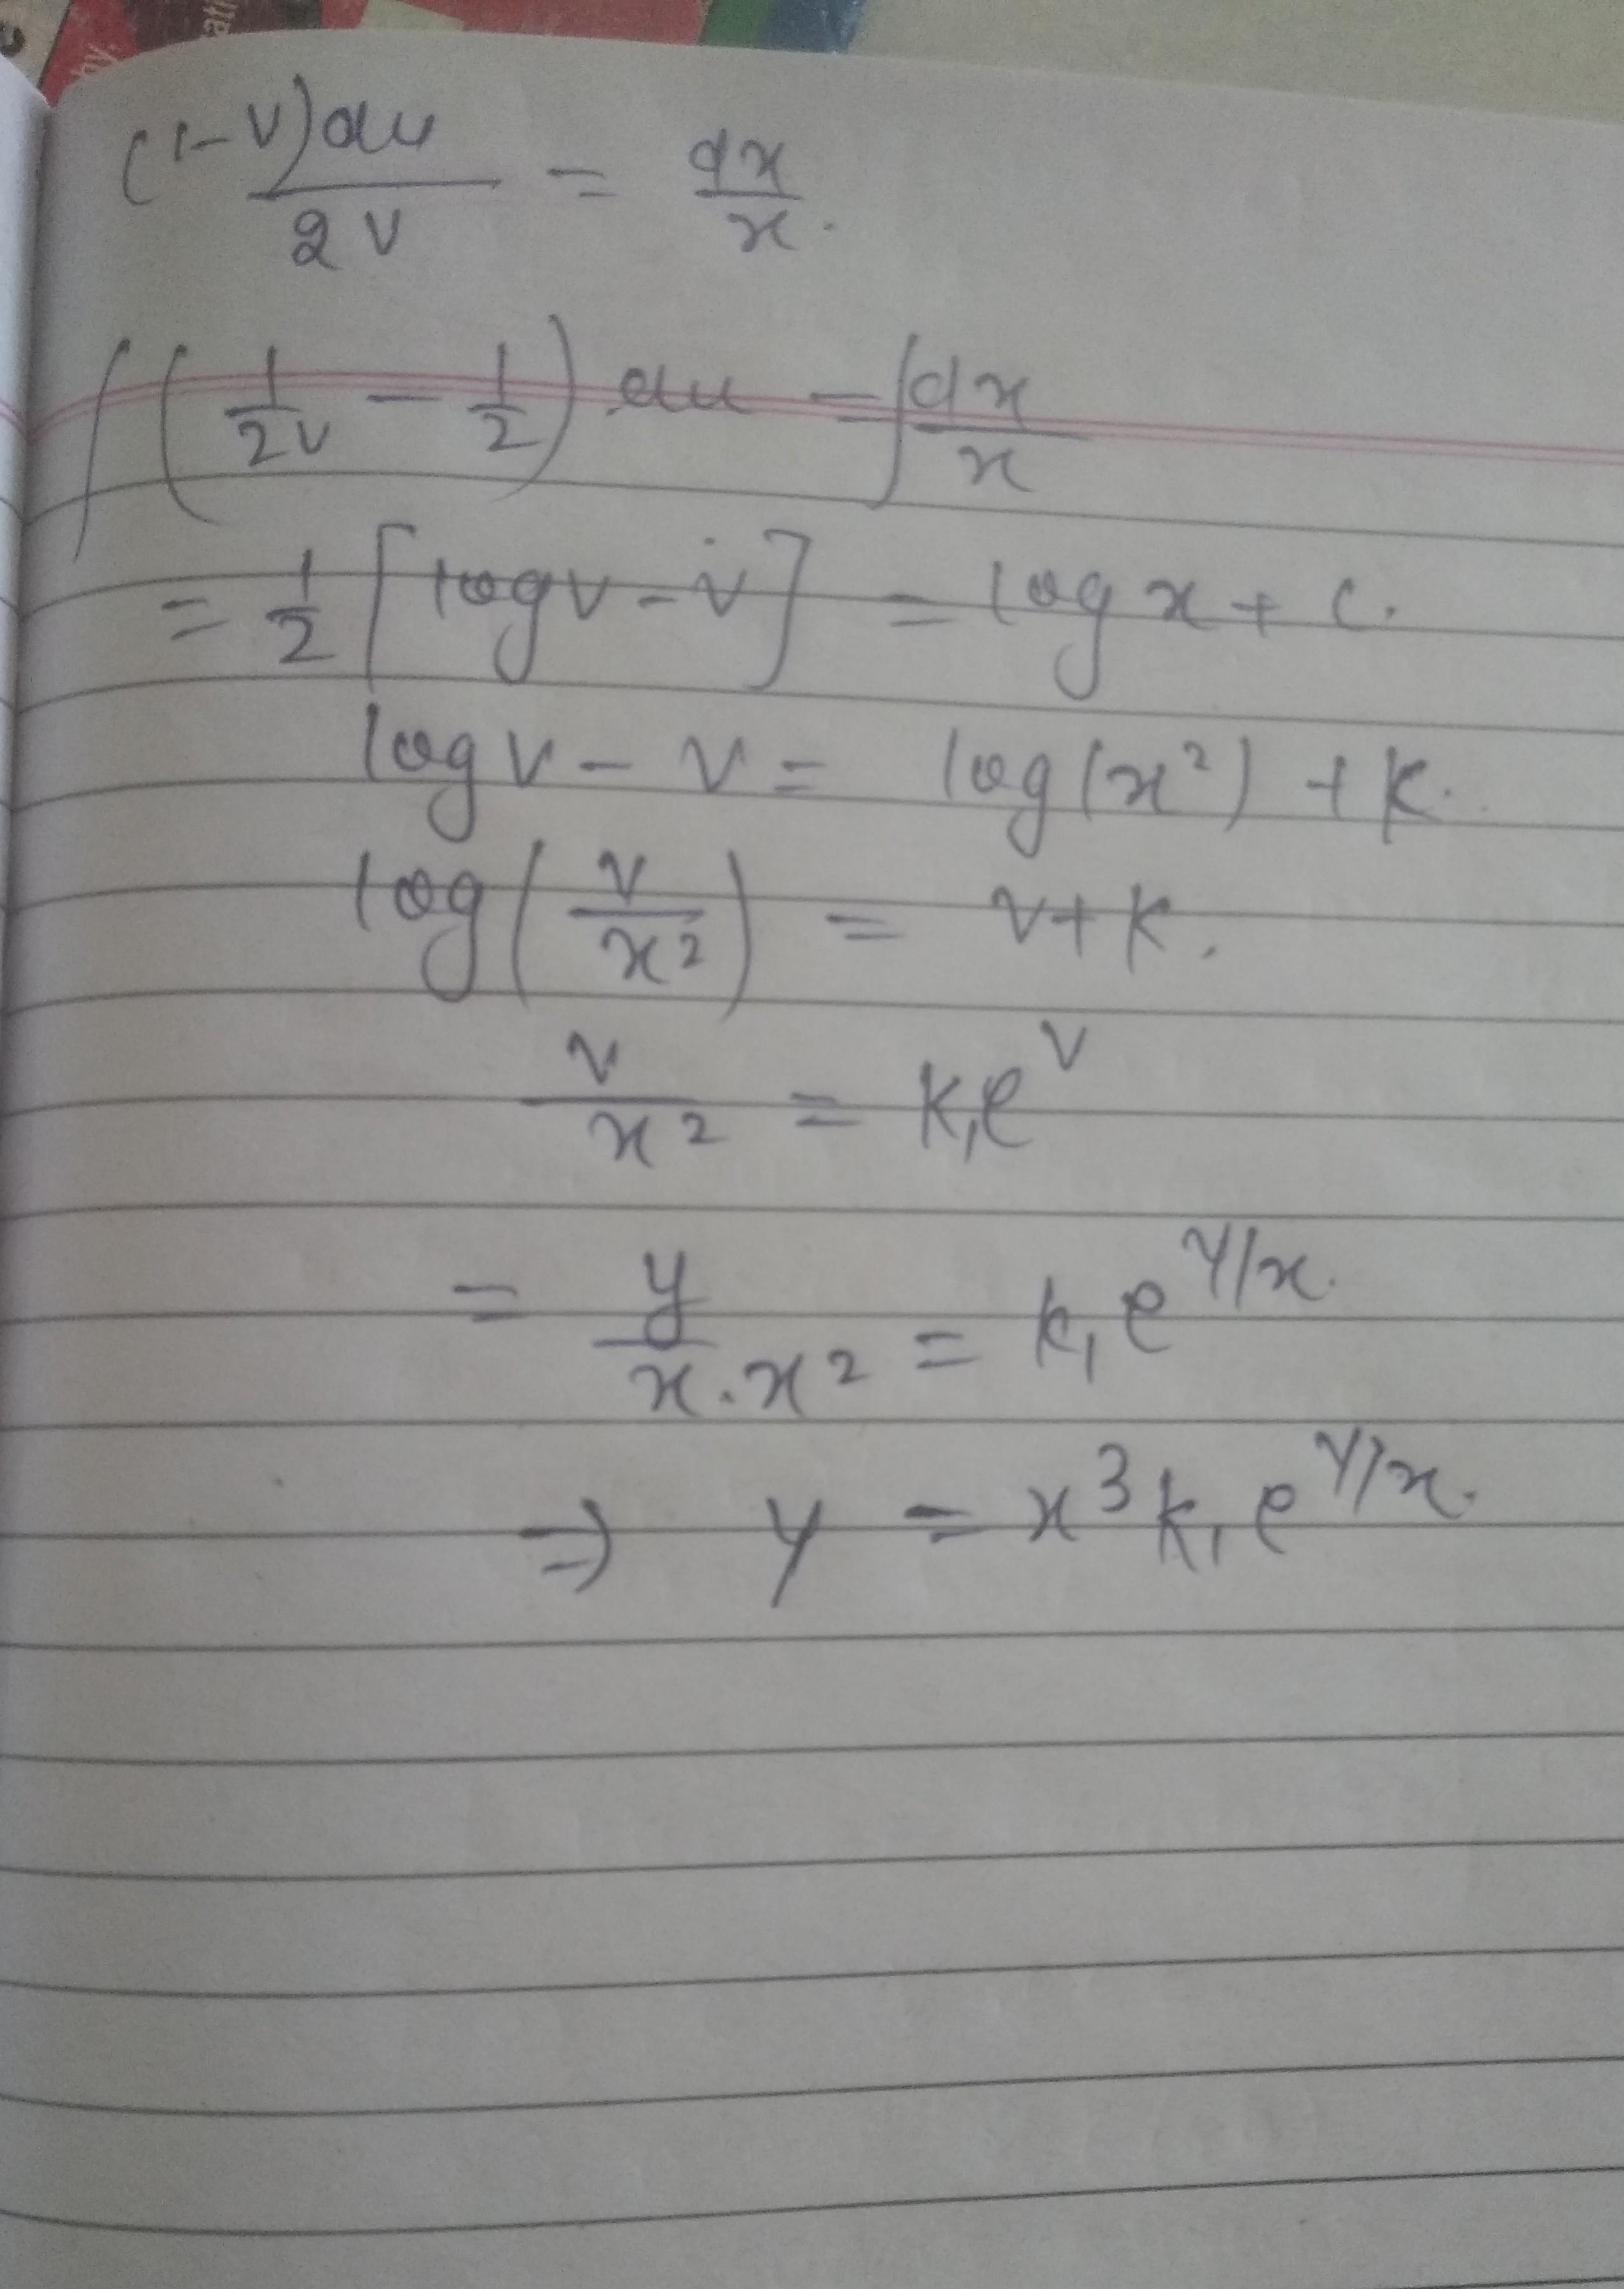 (1-v)du/2v = dx/x.
∫(1/2v - 1/2) du = ∫dx/x
= 1/2 [log v - v] = log x + c.
log v - v = log(x²) + k.
log(v/x²) = v + k.
v/x² = k₁e^v
= y/x.x² = k₁e^y/x.
⇒ y = x³k₁e^y/x.